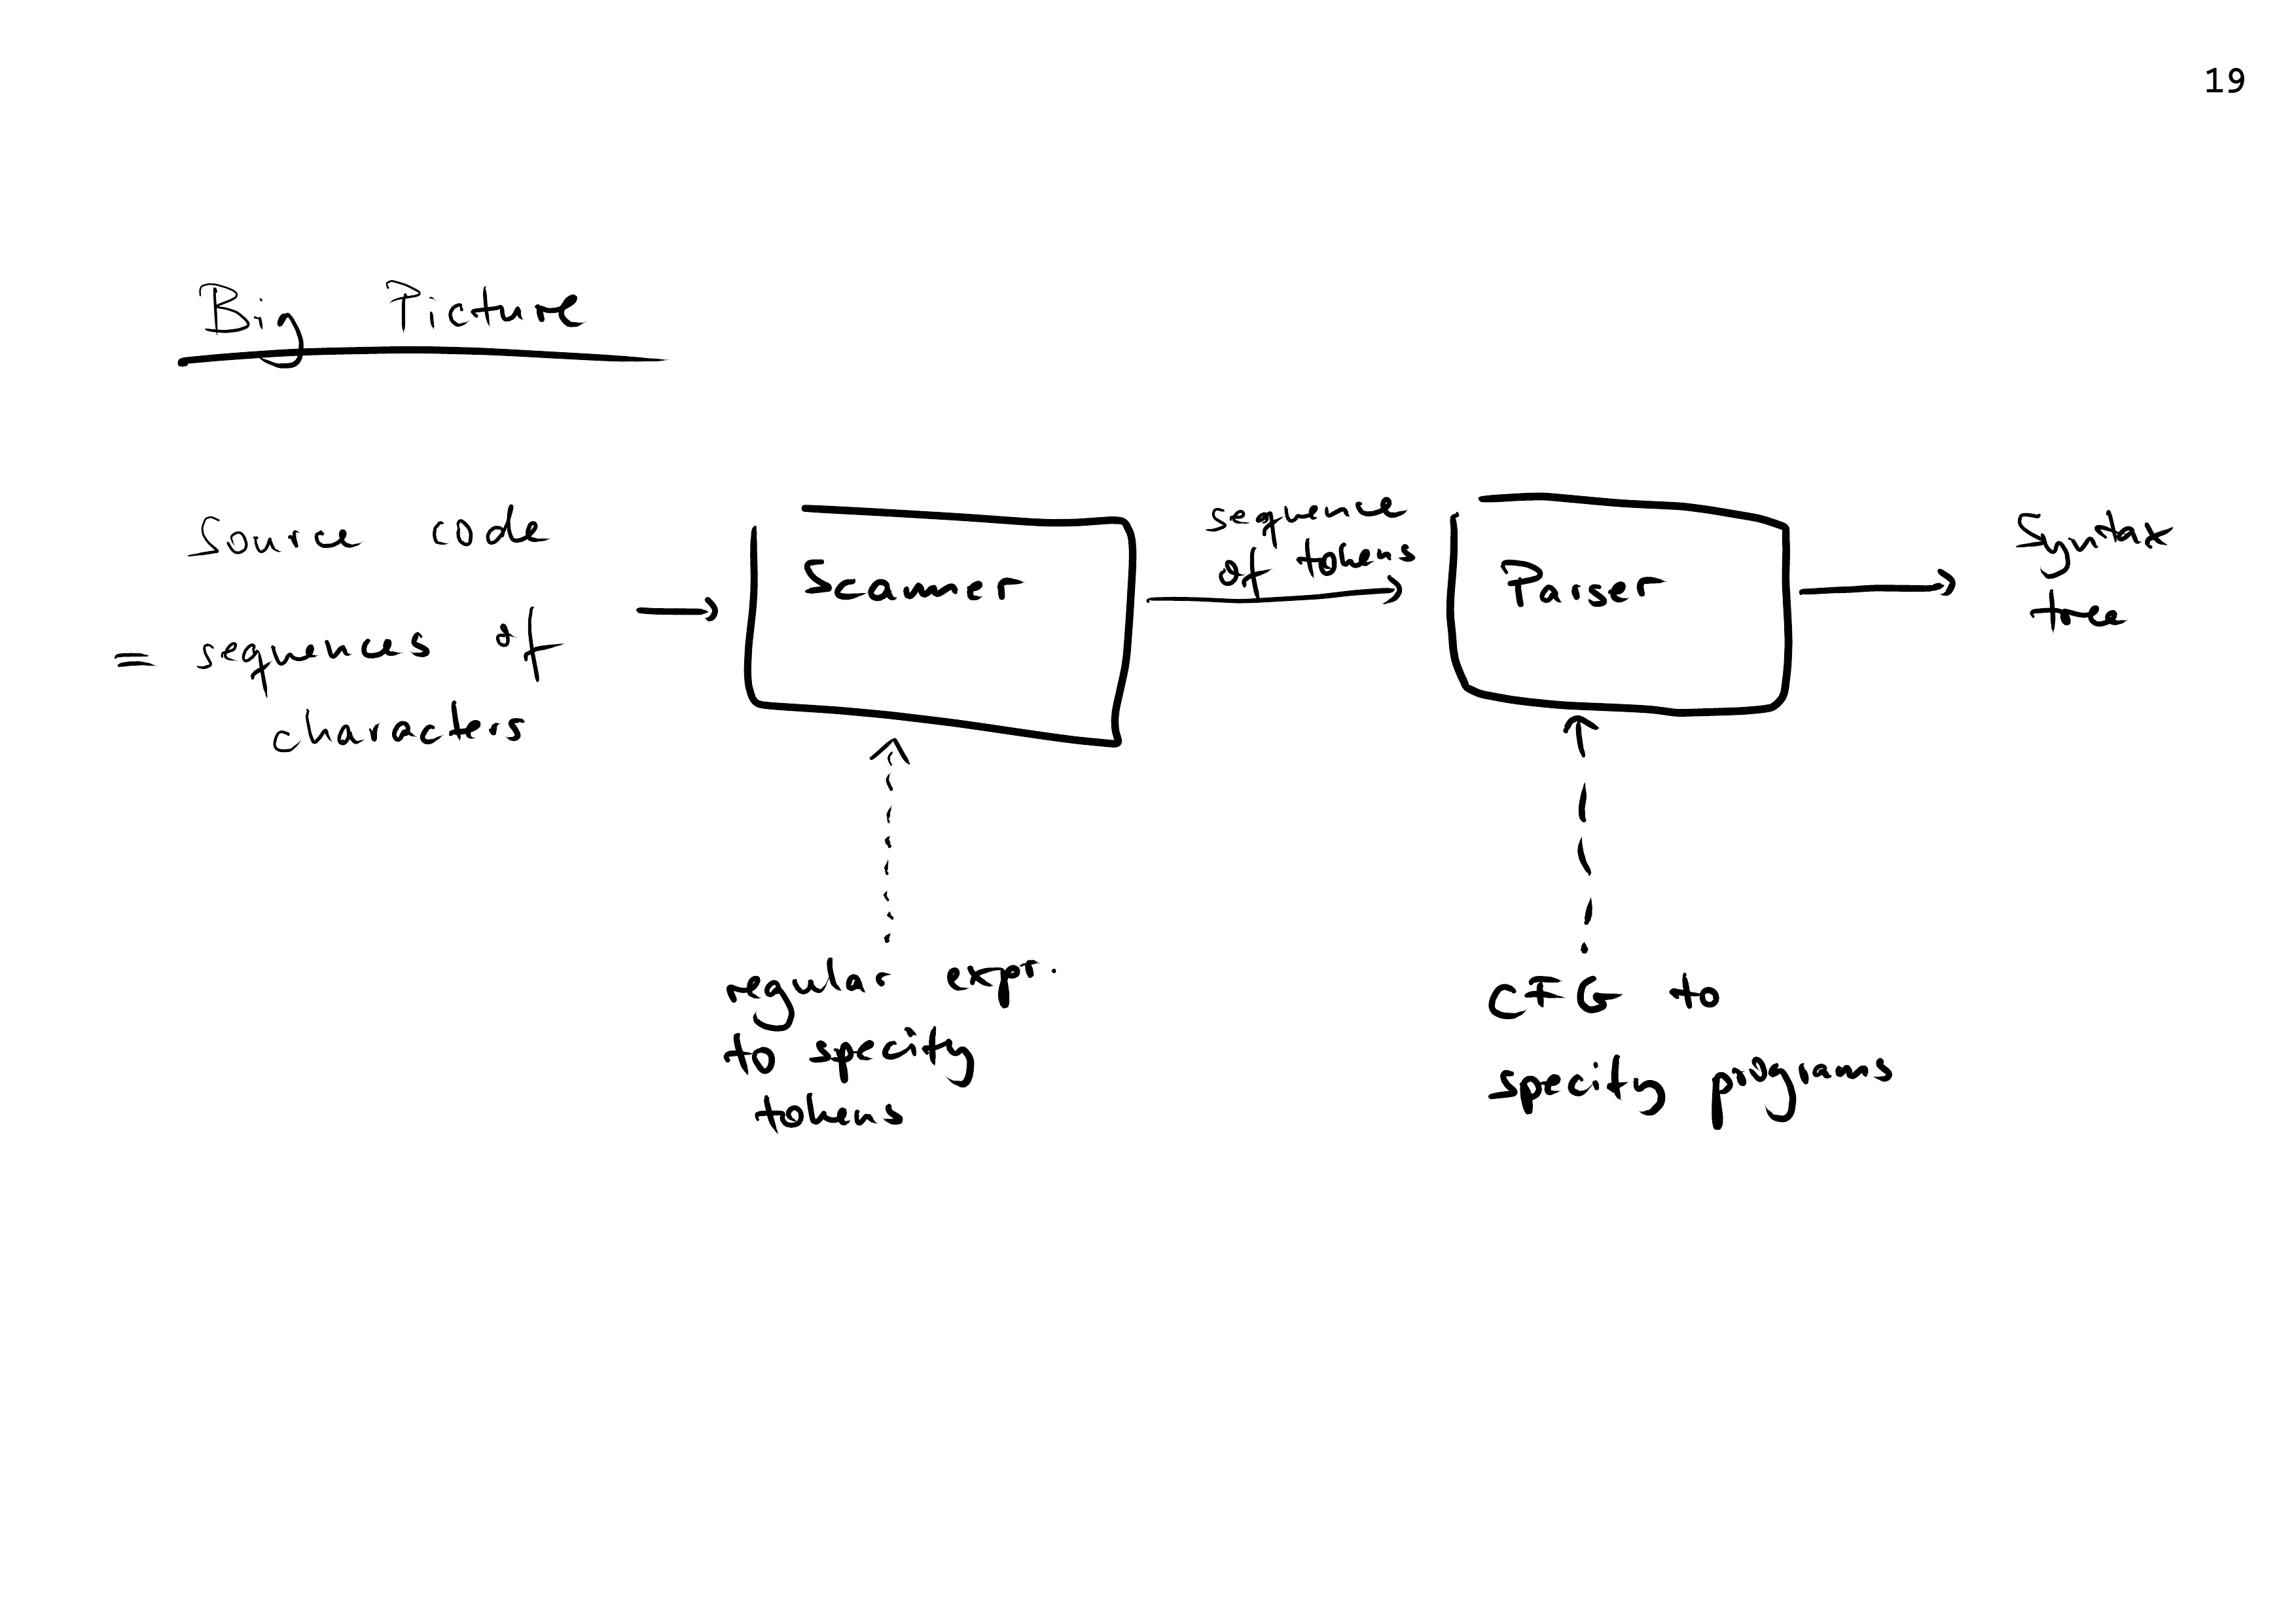 19
Big Picture
Source code
= sequences of
characters
Scanner
sequence
of tokens
Parser
Syntax
tree
regular expr.
to specify
tokens
CFG to
specify programs